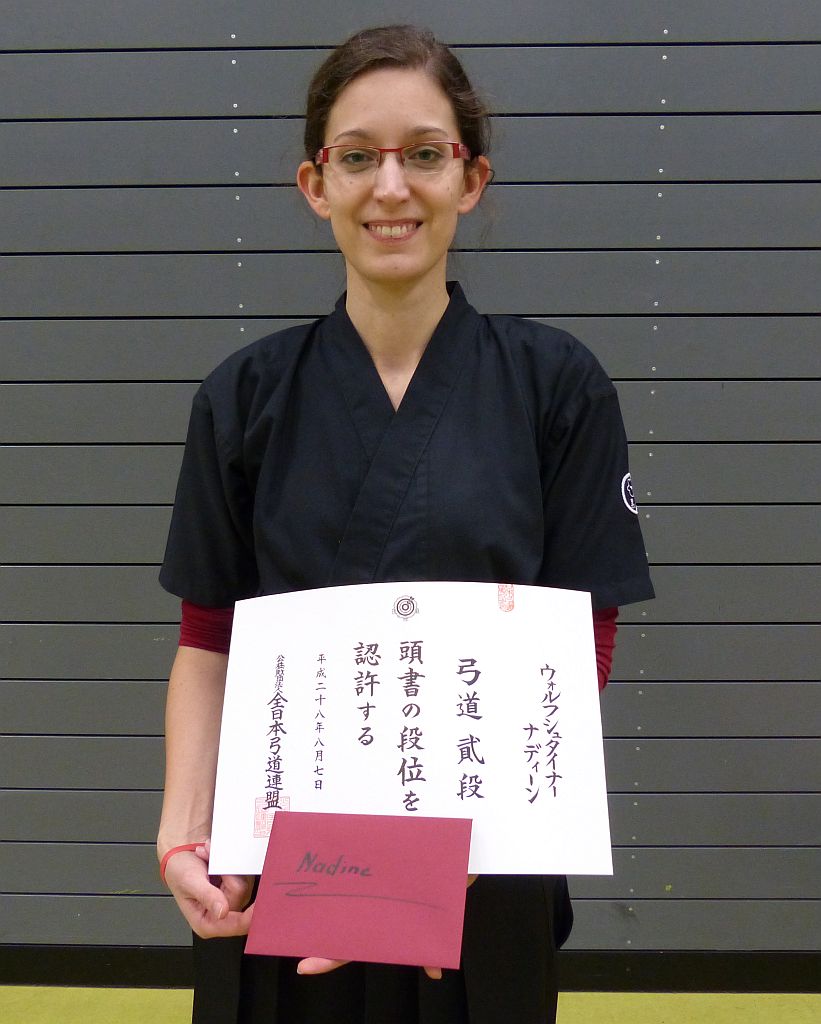 ウォルフシュタイナー
ナディーン
弓道 貳段
頭書の段位を
認許する
平成二十八年八月七日
公益財団法人全日本弓道連盟
Nadine